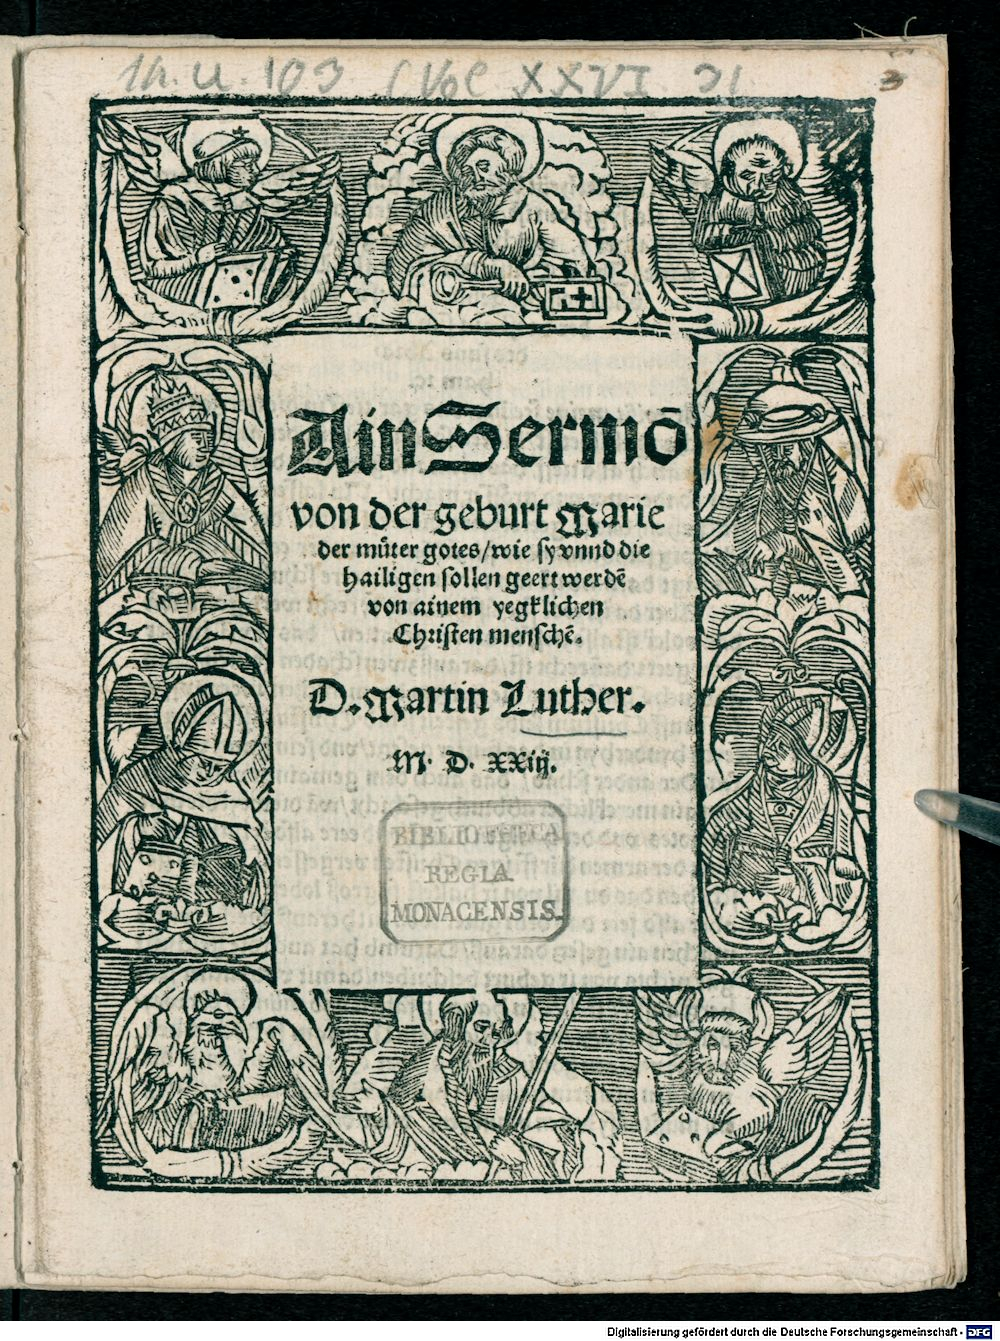 Th. u. 103 (Vol XXVI 31
3
Ain Sermō
von der geburt Marie
der můter gotes/ wie sy vnnd die
hailigen sollen geert werdē
von ainem yegklichen
Christen menschē.
D. Martin Luther.
M. D. XXiij.
BIBLIOTHECA
REGIA
MONACENSIS.
Digitalisierung gefördert durch die Deutsche Forschungsgemeinschaft - DFG